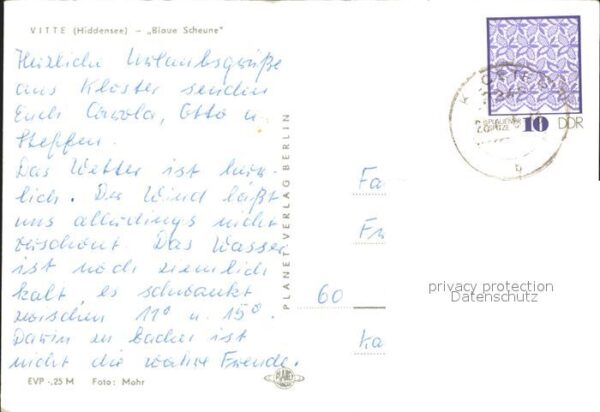 VITTE (Hiddensee) – „Blaue Scheune"
Herzliche Urlaubsgrüße
aus Kloster senden
Euch Carola, Otto u.
Steffen.
Das Wetter ist herr-
lich. Der Wind läßt
uns allerdings nicht
verschont. Das Wasser
ist noch ziemlich
kalt, es schwankt
zwischen 11° u. 15°.
Darin zu baden ist
nicht die wahre Freude.
EVP -,25 M Foto: Mohr
PLANET VERLAG BERLIN
PLAUENER
SPITZE
10 DDR
Fa
Fr
60
privacy protection
Datenschutz
Ka